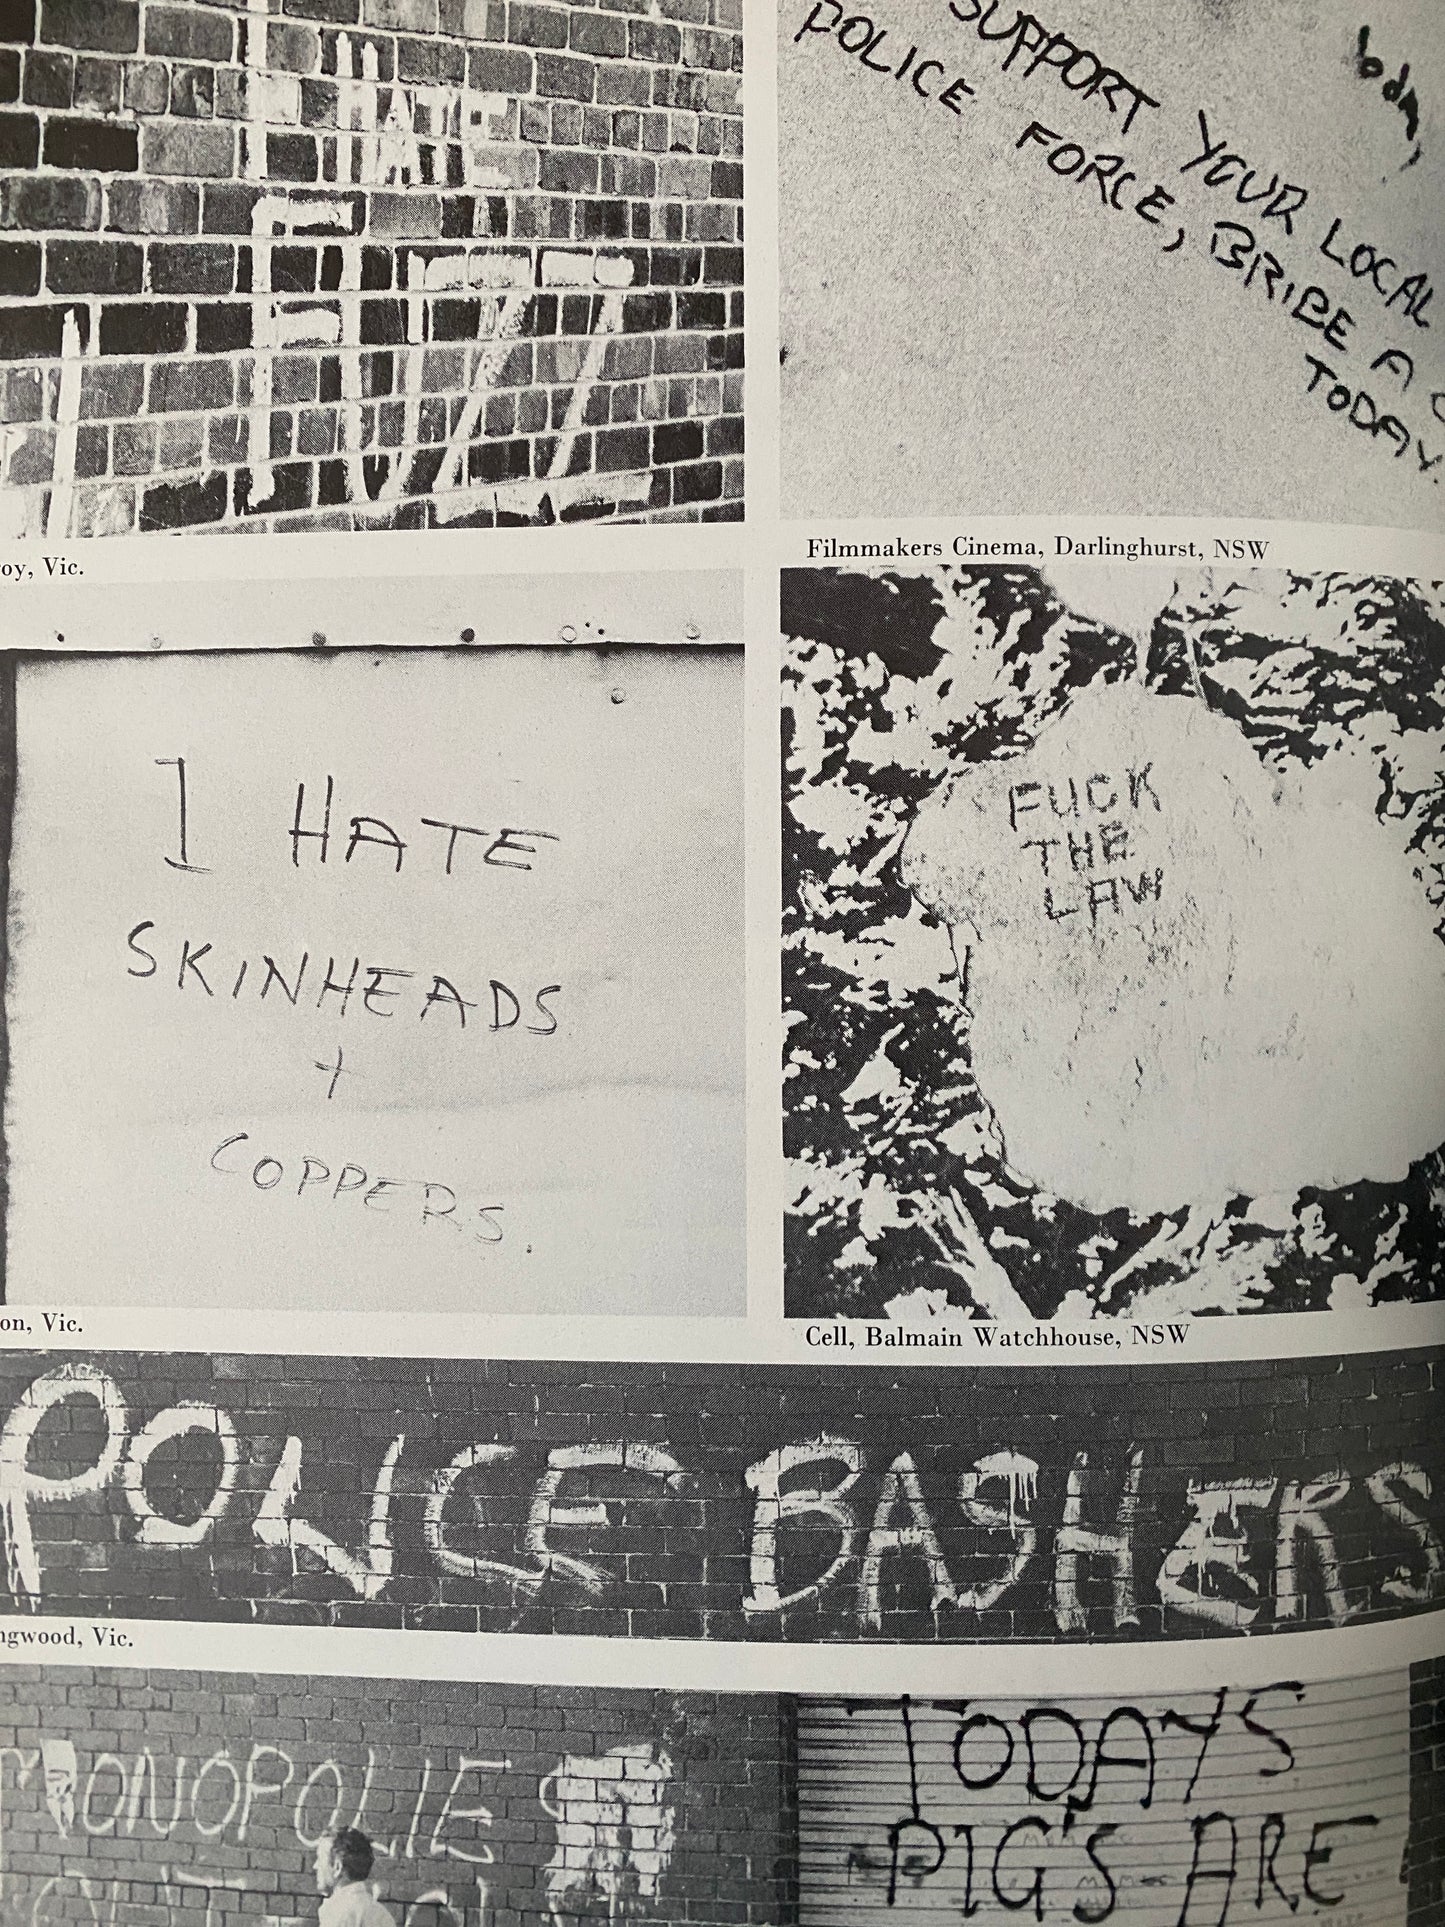 I HATE
FUZZ
roy, Vic.
SUPPORT YOUR LOCAL
POLICE FORCE, BRIBE A
TODAY.
body,
Filmmakers Cinema, Darlinghurst, NSW
I HATE
SKINHEADS
+
COPPERS.
on, Vic.
FUCK
THE
LAW
Cell, Balmain Watchhouse, NSW
POLICE BASHERS
ngwood, Vic.
MONOPOLIE
TODAY'S
PIG'S ARE